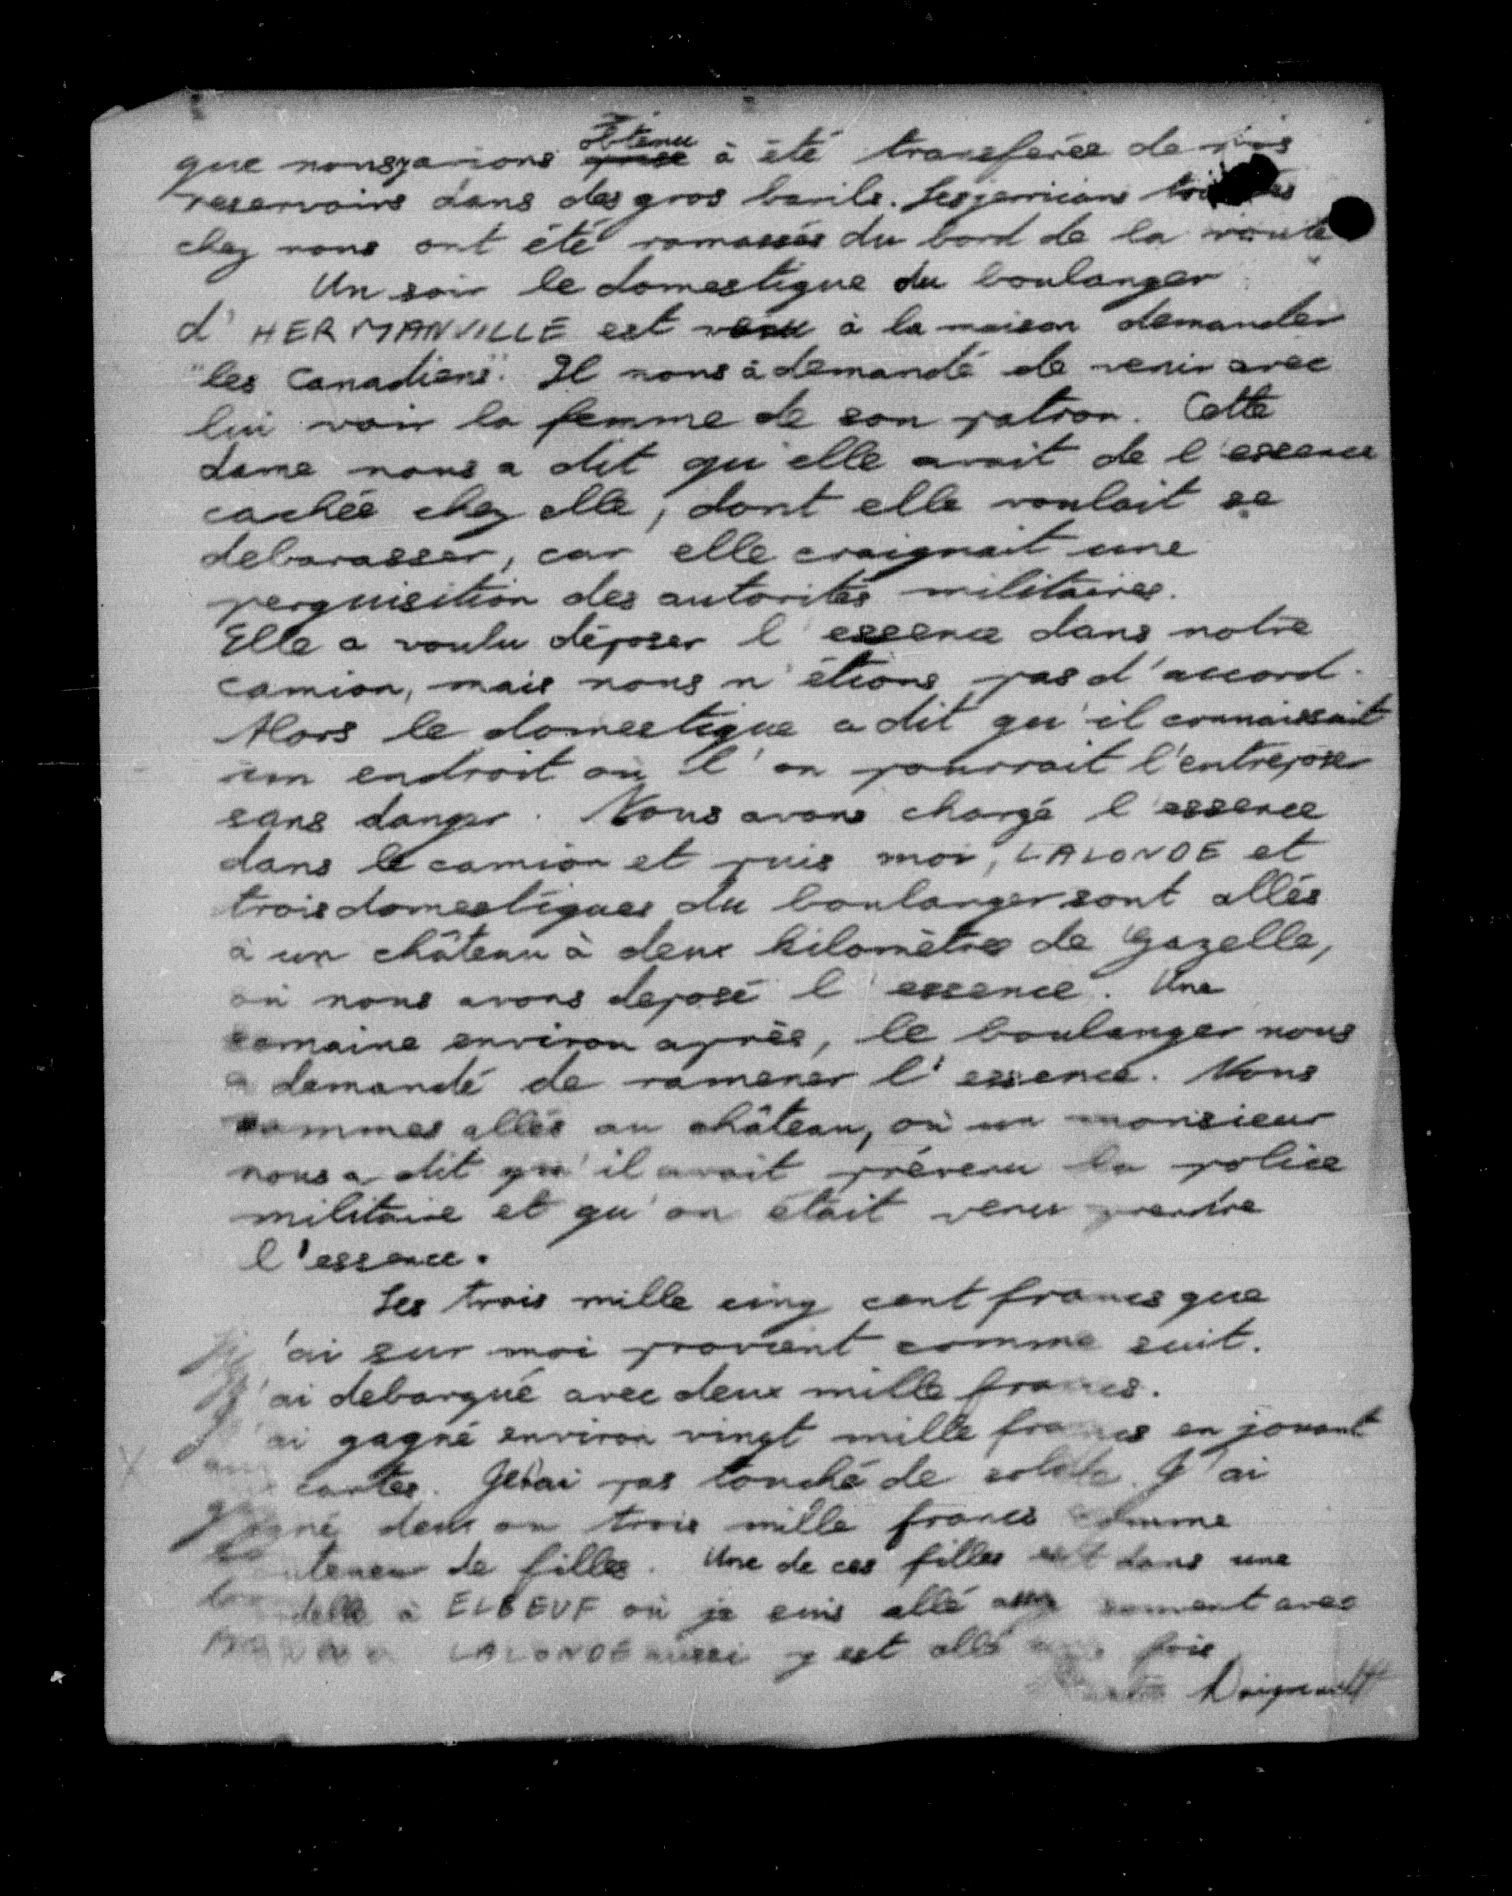 que nous avions obtenu à été transferée de nos
reservoirs dans des gros barils. Les jerricans trouvés
chez nous ont été ramassés du bord de la route
Un soir le domestique du boulanger
d'HERMANVILLE est venu à la maison demander
"les Canadiens". Il nous à demandé de venir avec
lui voir la femme de son patron. Cette
dame nous a dit qu'elle avait de l'essence
cachée chez elle, dont elle voulait se
debarasser, car elle craignait une
perquisition des autorités militaires.
Elle a voulu déposer l'essence dans notre
camion, mais nous n'étions pas d'accord.
Alors le domestique a dit qu'il connaissait
un endroit où l'on pourrait l'entreposer
sans danger. Nous avons chargé l'essence
dans le camion et puis moi, LALONDE et
trois domestiques du boulanger sont allés
à un château à deux kilomètres de Gazelle,
où nous avons deposé l'essence. Une
semaine environ après, le boulanger nous
a demandé de ramener l'essence. Nous
sommes allés au château, où un monsieur
nous a dit qu'il avait prévenu la police
militaire et qu'on était venu prendre
l'essence.
Les trois mille cinq cent francs que
j'ai sur moi provient comme suit.
J'ai debarqué avec deux mille francs.
J'ai gagné environ vingt mille francs en jouant
aux cartes. Je n'ai pas touché de solde. J'ai
gagné deux ou trois mille francs comme
souteneur de filles. Une de ces filles est dans une
à ELBEUF où je suis allé souvent avec
LALONDE aussi y est allé fois
Daigneault